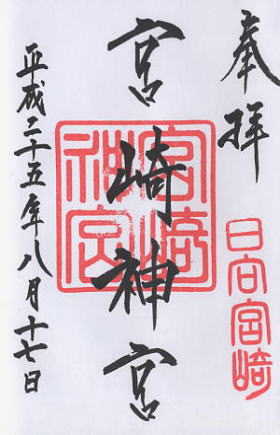 奉拝
日向宮崎
宮崎神宮
宮崎神宮
平成二十五年八月十七日